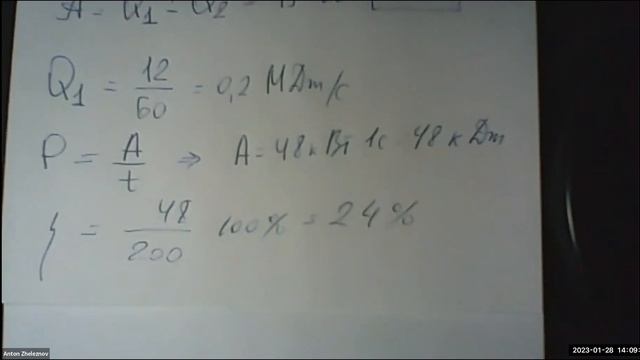 A = Q1 - Q2
Q1 = 12/60 = 0,2 МДж/с
P = A/t ⇒ A = 48 кВт 1с = 48 кДж
η = 48/200 100% = 24%
Anton Zheleznov
2023-01-28 14:09